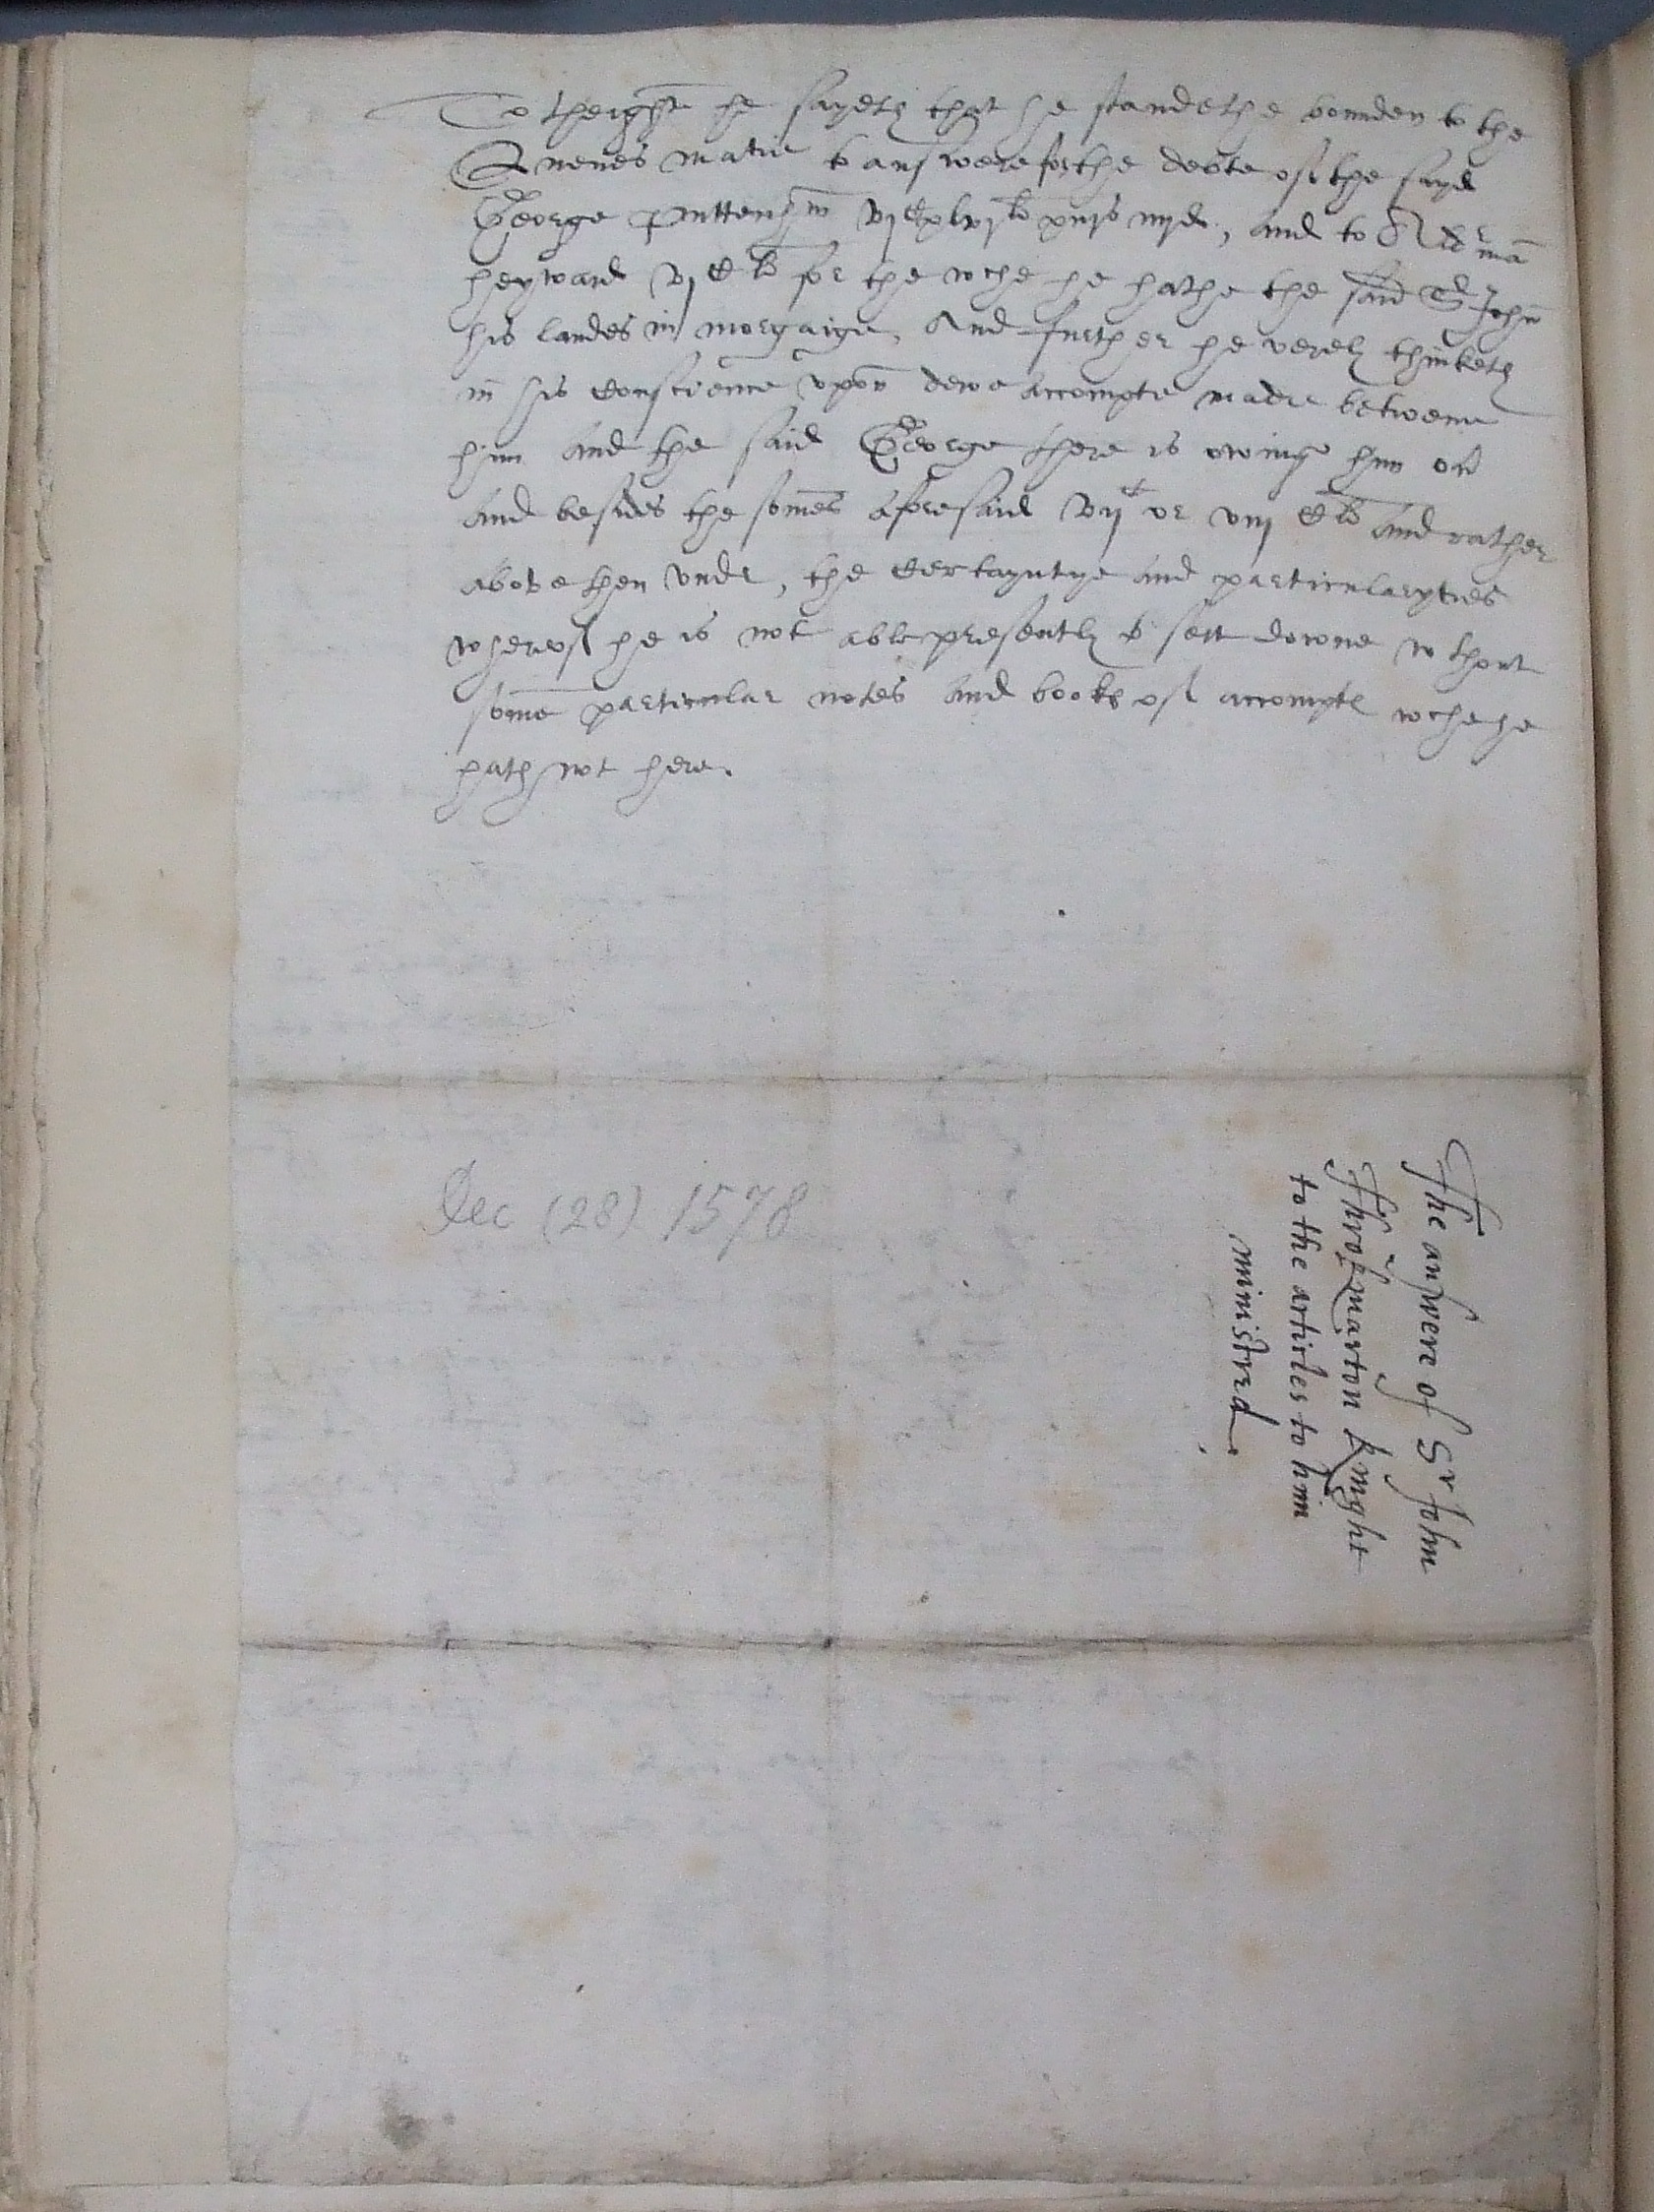 To theight he sayeth that he standethe bounden to the
Quenes matie to answere for the debte of the sayd
George Puttenhm vj C xlvj li xiijs iiijd, and to Alderman
heyward vj C li for the wche he hathe the said Sr John
his landes in morgaige, And further he verely thinketh
in his conscience vpon dewe accompte made betwene
him and the said George there is owinge him on
and besides the somes aforesaid vij C or viij C li and rather
above then vnder, the certayntye and particularyties
whereof he is not able presently to sett downe wthout
some particular notes and books of accompte wche he
hath not here.
The answere of Sr John
Throkmarton knight
to the articles to him
ministred.
Dec (28) 1578